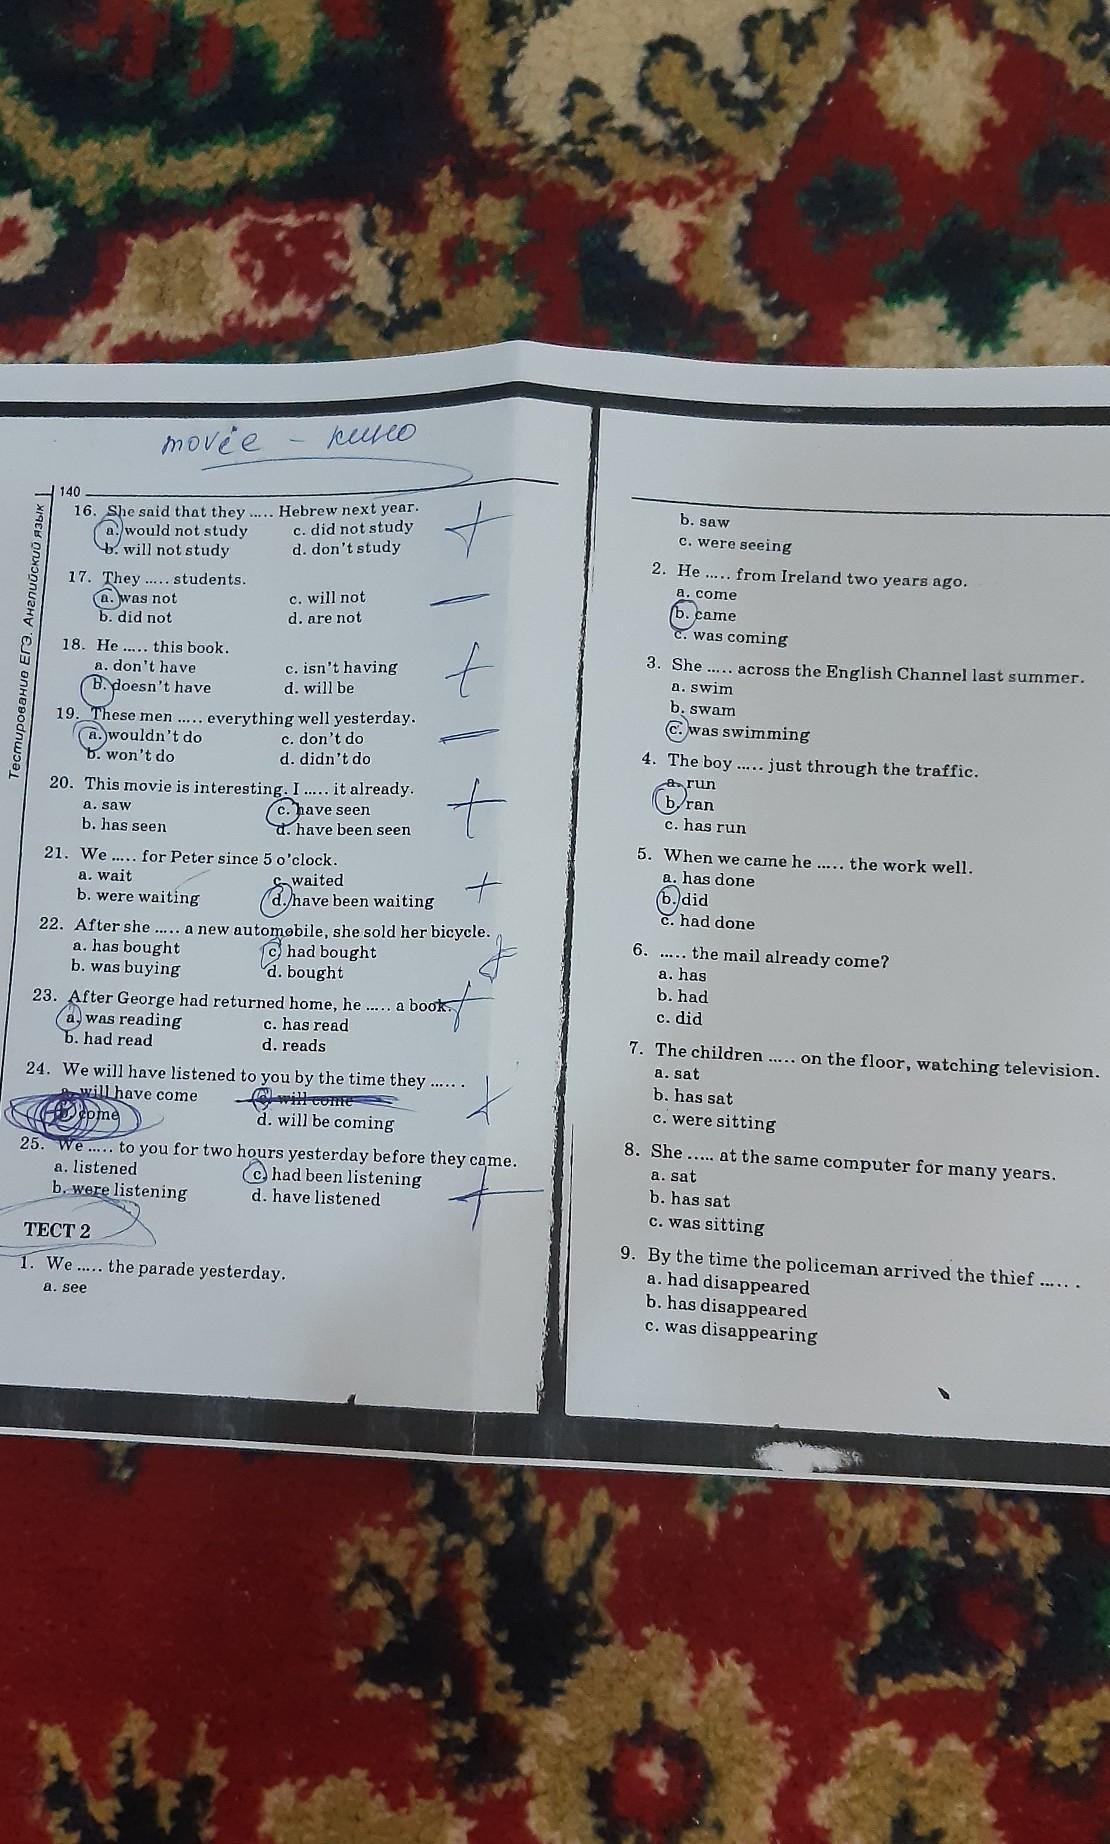 movie - кино
140
Тестирование ЕГЭ. Английский язык
16. She said that they ..... Hebrew next year.
a. would not study c. did not study
b. will not study d. don't study
17. They ..... students.
a. was not c. will not
b. did not d. are not
18. He ..... this book.
a. don't have c. isn't having
b. doesn't have d. will be
19. These men ..... everything well yesterday.
a. wouldn't do c. don't do
b. won't do d. didn't do
20. This movie is interesting. I ..... it already.
a. saw c. have seen
b. has seen d. have been seen
21. We ..... for Peter since 5 o'clock.
a. wait c. waited
b. were waiting d. have been waiting
22. After she ..... a new automobile, she sold her bicycle.
a. has bought c. had bought
b. was buying d. bought
23. After George had returned home, he ..... a book.
a. was reading c. has read
b. had read d. reads
24. We will have listened to you by the time they ..... .
a. will have come c. will come
b. come d. will be coming
25. We ..... to you for two hours yesterday before they came.
a. listened c. had been listening
b. were listening d. have listened
ТЕСТ 2
1. We ..... the parade yesterday.
a. see
b. saw
c. were seeing
2. He ..... from Ireland two years ago.
a. come
b. came
c. was coming
3. She ..... across the English Channel last summer.
a. swim
b. swam
c. was swimming
4. The boy ..... just through the traffic.
a. run
b. ran
c. has run
5. When we came he ..... the work well.
a. has done
b. did
c. had done
6. ..... the mail already come?
a. has
b. had
c. did
7. The children ..... on the floor, watching television.
a. sat
b. has sat
c. were sitting
8. She ..... at the same computer for many years.
a. sat
b. has sat
c. was sitting
9. By the time the policeman arrived the thief ..... .
a. had disappeared
b. has disappeared
c. was disappearing